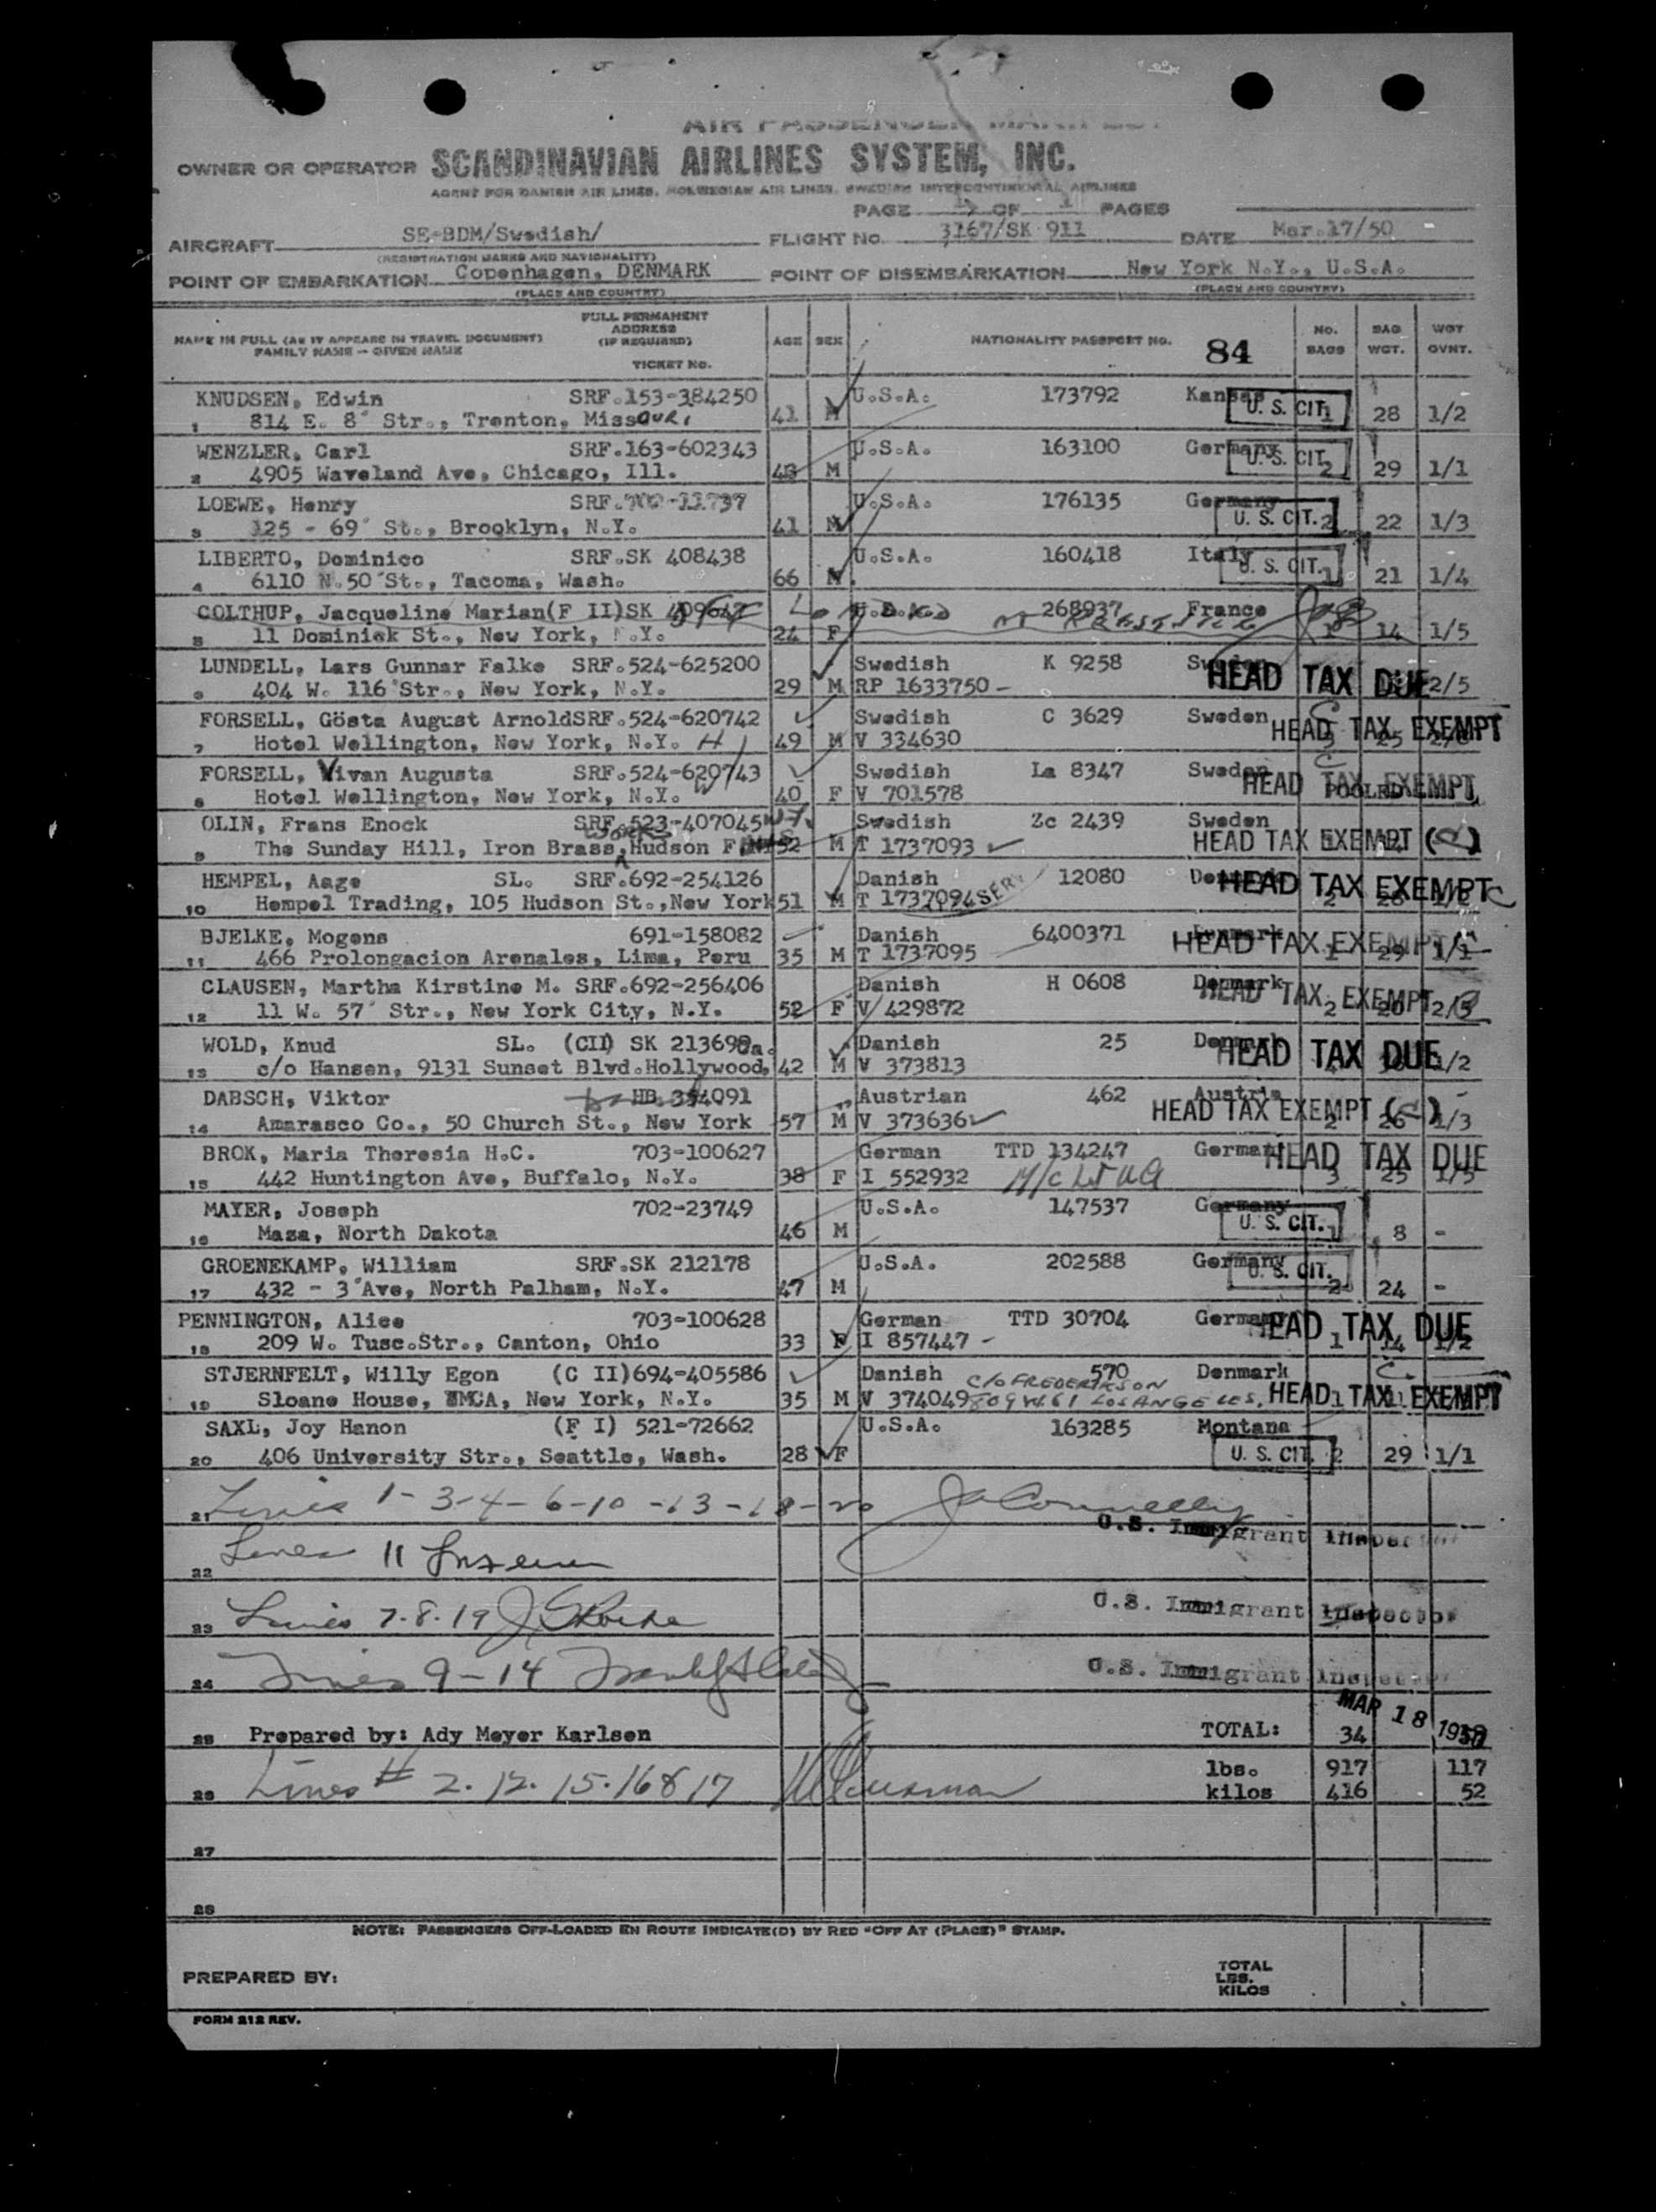 AIR PASSENGER MANIFEST
OWNER OR OPERATOR SCANDINAVIAN AIRLINES SYSTEM, INC.
AGENT FOR DANISH AIR LINES, NORWEGIAN AIR LINES, SWEDISH INTERCONTINENTAL AIRLINES
PAGE 1 OF 1 PAGES
AIRCRAFT SE-BDM/Swedish/ FLIGHT NO. 3167/SK 911 DATE Mar.17/50
(REGISTRATION MARKS AND NATIONALITY)
POINT OF EMBARKATION Copenhagen, DENMARK POINT OF DISEMBARKATION New York N.Y., U.S.A.
(PLACE AND COUNTRY) (PLACE AND COUNTRY)
NAME IN FULL (AS IT APPEARS IN TRAVEL DOCUMENT) FAMILY NAME - GIVEN NAME FULL PERMANENT ADDRESS (IF REQUIRED) TICKET NO. AGE SEX NATIONALITY PASSPORT NO. 84 NO. BAGS BAG WGT. WGT OVNT.
KNUDSEN, Edwin SRF.153-384250 U.S.A. 173792 Kansas U. S. CIT.
1 814 E. 8' Str., Trenton, Missouri 41 M 1 28 1/2
WENZLER, Carl SRF.163-602343 U.S.A. 163100 Germany U. S. CIT.
2 4905 Waveland Ave, Chicago, Ill. 48 M 2 29 1/1
LOEWE, Henry SRF. U.S.A. 176135 Germany U. S. CIT.
3 125 - 69' St., Brooklyn, N.Y. 41 M 2 22 1/3
LIBERTO, Dominico SRF.SK 408438 U.S.A. 160418 Italy U. S. CIT.
4 6110 N.50'St., Tacoma, Wash. 66 M 1 21 1/4
COLTHUP, Jacqueline Marian(F II)SK 268937 France
5 11 Dominiek St., New York, N.Y. 24 F 1 14 1/5
LUNDELL, Lars Gunnar Falke SRF.524-625200 Swedish K 9258 Sweden HEAD TAX DUE
6 404 W. 116'Str., New York, N.Y. 29 M RP 1633750 - 2/5
FORSELL, Gösta August ArnoldSRF.524-620742 Swedish C 3629 Sweden HEAD TAX EXEMPT
7 Hotel Wellington, New York, N.Y. H 49 M V 334630 3 25
FORSELL, Vivan Augusta SRF.524-620743 Swedish La 8347 Sweden HEAD TAX EXEMPT
8 Hotel Wellington, New York, N.Y. W 40 F V 701578 POOLED
OLIN, Frans Enock SRF.523-407045 Swedish Zc 2439 Sweden
9 The Sunday Hill, Iron Brass, Hudson 52 M T 1737093 HEAD TAX EXEMPT
HEMPEL, Aage SL. SRF.692-254126 Danish 12080 HEAD TAX EXEMPT
10 Hempel Trading, 105 Hudson St.,New York 51 M T 1737094 2
BJELKE, Mogens 691-158082 Danish 6400371 Denmark HEAD TAX EXEMPT
11 466 Prolongacion Arenales, Lima, Peru 35 M T 1737095 1 29 1/1
CLAUSEN, Martha Kirstine M. SRF.692-256406 Danish H 0608 Denmark HEAD TAX EXEMPT
12 11 W. 57' Str., New York City, N.Y. 52 F V 429872 2 2/3
WOLD, Knud SL. (CII) SK 213698 Danish 25 Denmark HEAD TAX DUE
13 c/o Hansen, 9131 Sunset Blvd.Hollywood, 42 M V 373813 1/2
DABSCH, Viktor HB 394091 Austrian 462 Austria HEAD TAX EXEMPT
14 Amarasco Co., 50 Church St., New York 57 M V 373636 2 26 1/3
BROK, Maria Theresia H.C. 703-100627 German TTD 134247 Germany HEAD TAX DUE
15 442 Huntington Ave, Buffalo, N.Y. 38 F I 552932 3 25 1/5
MAYER, Joseph 702-23749 U.S.A. 147537 Germany U. S. CIT.
16 Maza, North Dakota 46 M 1 8 -
GROENEKAMP, William SRF.SK 212178 U.S.A. 202588 Germany U. S. CIT.
17 432 - 3'Ave, North Palham, N.Y. 47 M 2 24 -
PENNINGTON, Alice 703-100628 German TTD 30704 Germany HEAD TAX DUE
18 209 W. Tusc.Str., Canton, Ohio 33 F I 857447 - 1 14 1/2
STJERNFELT, Willy Egon (C II)694-405586 Danish 570 Denmark C/O FREDERIKSON
19 Sloane House, YMCA, New York, N.Y. 35 M V 374049 809 W. 61 LOS ANGELES, HEAD TAX EXEMPT
SAXL, Joy Hanon (F I) 521-72662 U.S.A. 163285 Montana
20 406 University Str., Seattle, Wash. 28 F U. S. CIT. 2 29 1/1
21 Lines 1-3-4-6-10-13-18-20 J Connelly
U.S. Immigrant Inspector
22 Lines 11
23 Lines 7.8.19 U.S. Immigrant Inspector
24 Lines 9-14 U.S. Immigrant Inspector
MAR 18 1950
25 Prepared by: Ady Meyer Karlsen TOTAL: 34
lbs. 917 117
26 Lines # 2.12.15.16 & 17 kilos 416 52
27
28
NOTE: PASSENGERS OFF-LOADED EN ROUTE INDICATE(D) BY RED "OFF AT (PLACE)" STAMP.
PREPARED BY: TOTAL LBS. KILOS
FORM 212 REV.